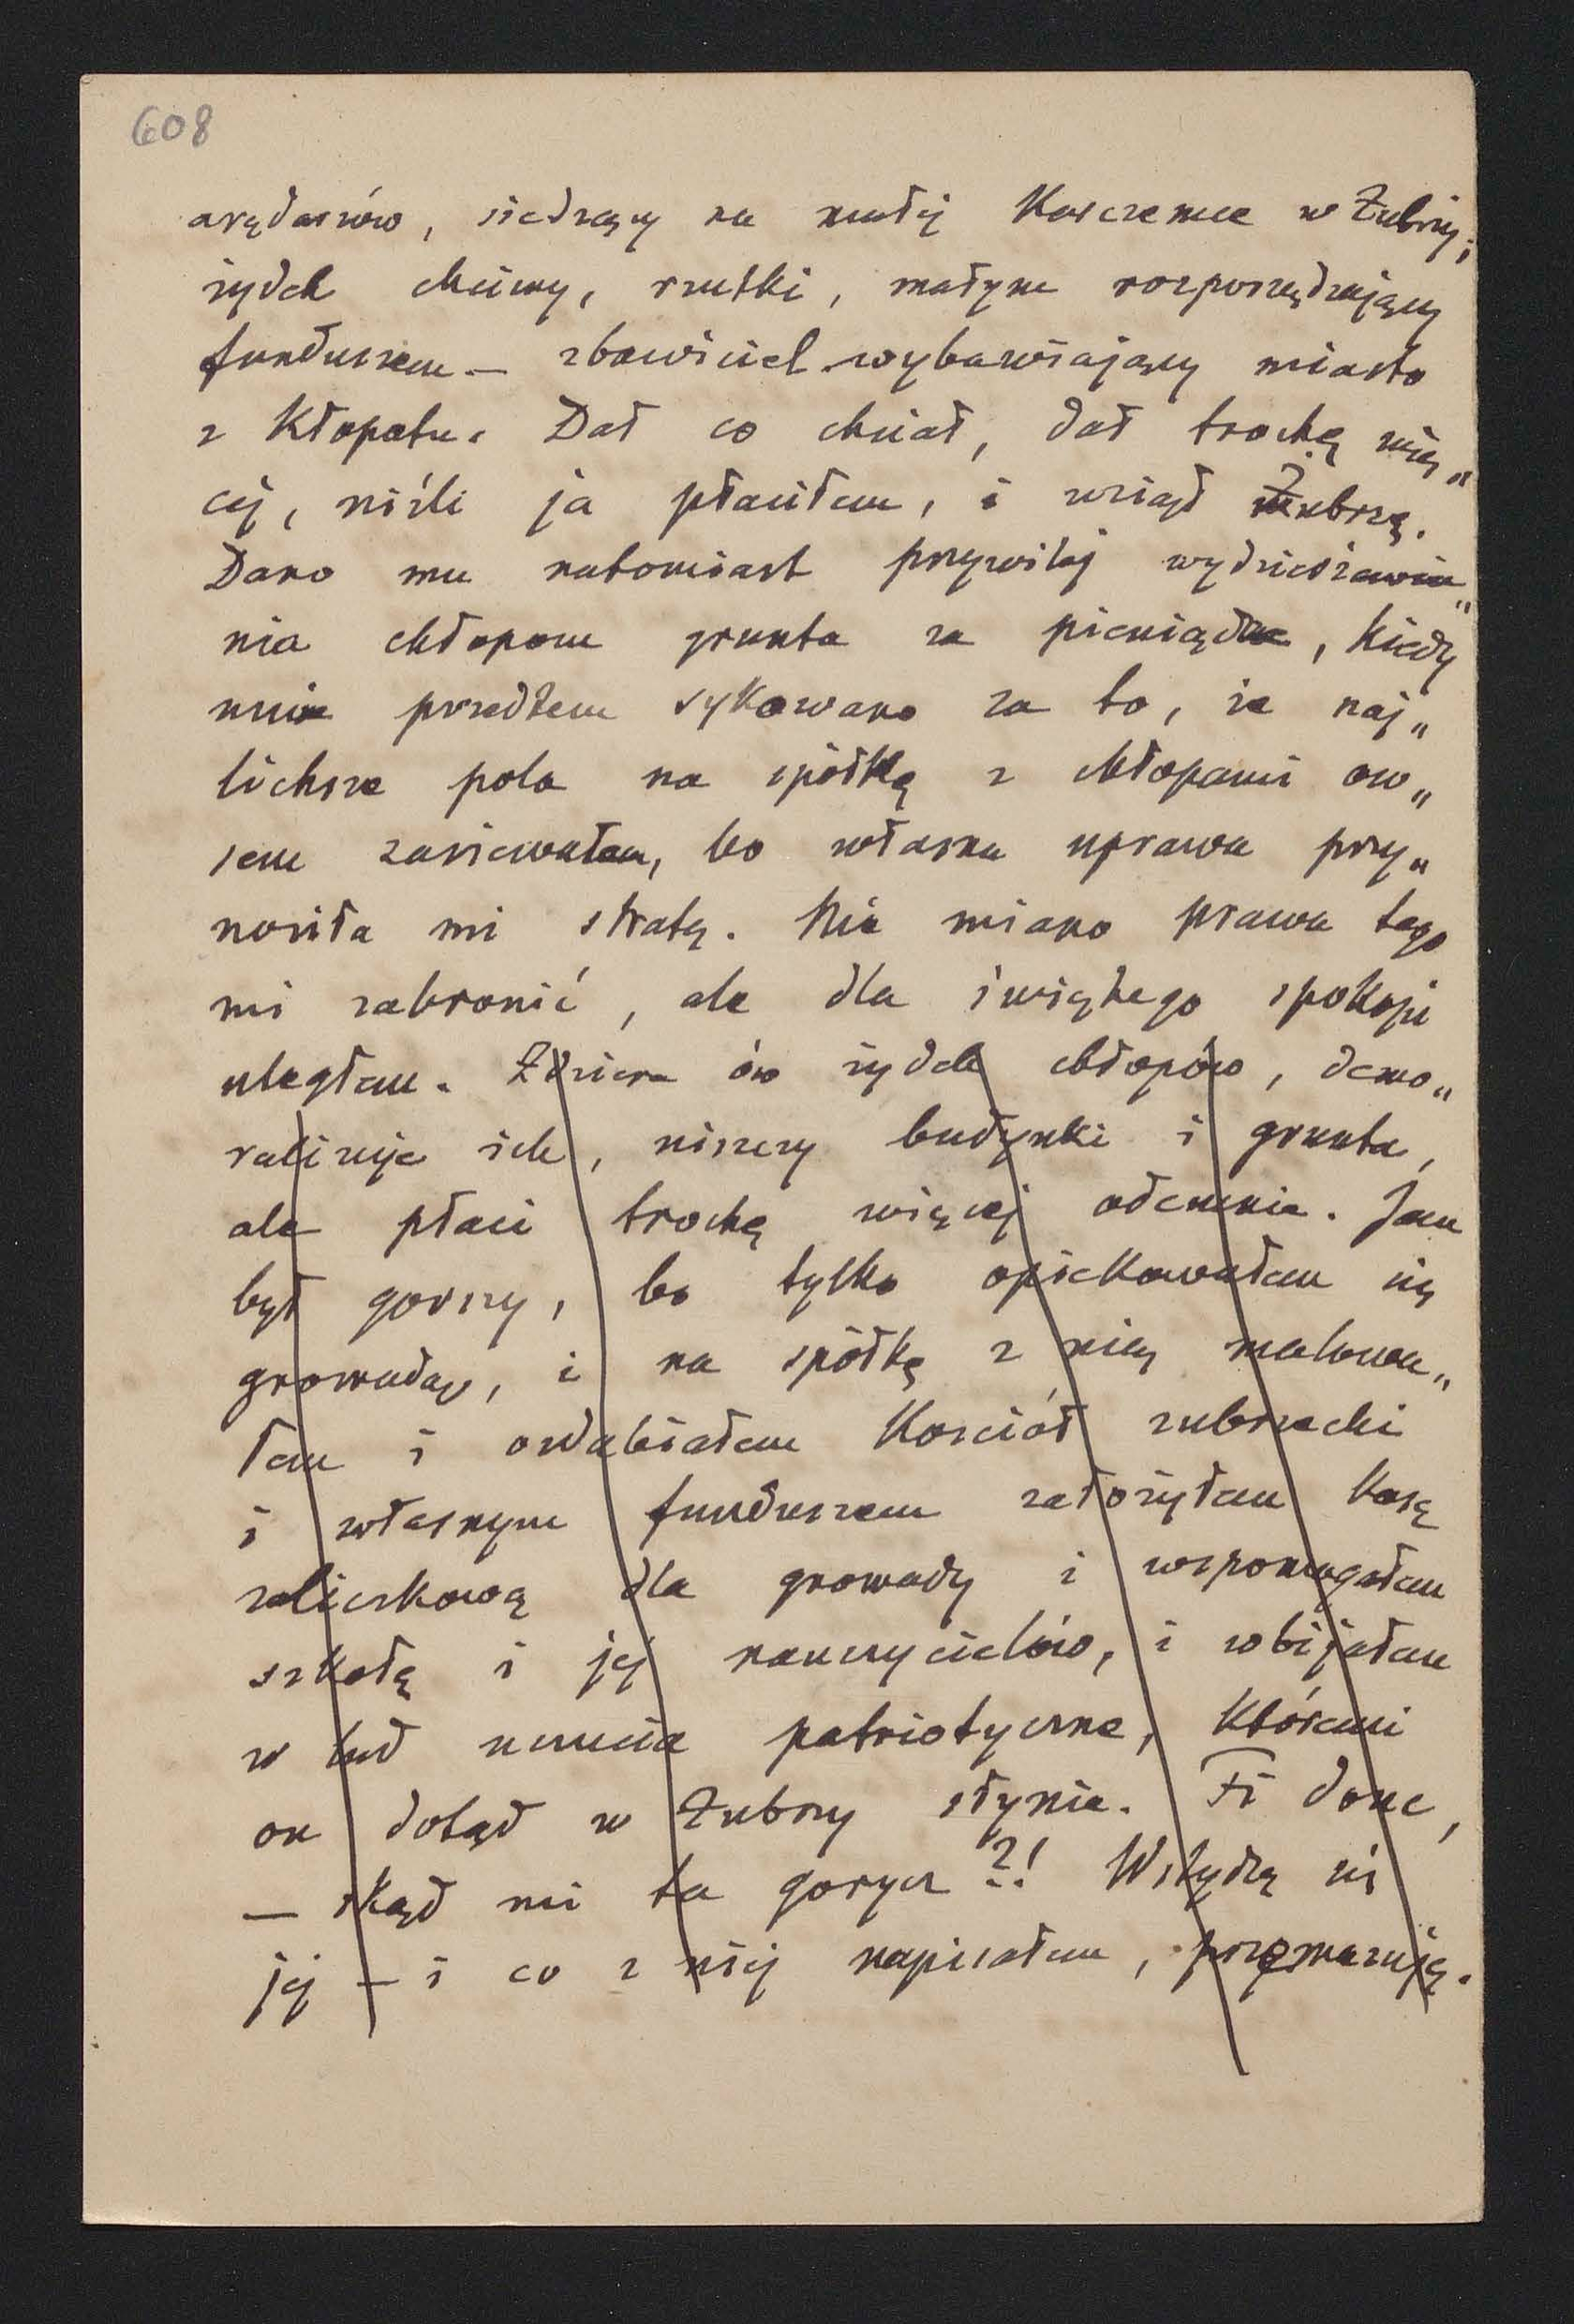 608
arędarzów, siedzący na małej karczemce w Zubrzy;
żydek chciwy, rzutki, małym rozporządzający
funduszem — zbawiciel wybawiający miasto
z kłopotu. Dał co chciał, dał trochę wię„
cej, niźli ja płaciłem, i wziął Zubrzę.
Dano mu natomiast przywilej wydzierżawia„
nia chłopom grunta za pieniądze, kiedy
mnie przedtem sykowano za to, że naj„
lichsze pola na spółkę z chłopami ow„
sem zasiewałem, bo własna uprawa przy„
nosiła mi stratę. Nie miano prawa tego
mi zabronić, ale dla świętego spokoju
uległem. Zdziera ów żydek chłopów, demo„
ralizuje ich, niszczy budynki i grunta,
ale płaci trochę więcej odemnie. Jam
był gorszy, bo tylko opiekowałem się
gromadą, i na spółkę z nią malowa„
łem i ozdabiałem kościół zubrzecki
i własnym funduszem założyłem kasę
zaliczkową dla gromady i wspomagałem
szkołę i jej nauczycielów, i wbijałem
w lud uczucia patriotyczne, któremi
on dotąd w Zubrzy słynie. Fi donc,
— skąd mi ta gorycz?! Wstydzę się
jej — i co z niej napisałem, przemazuję.